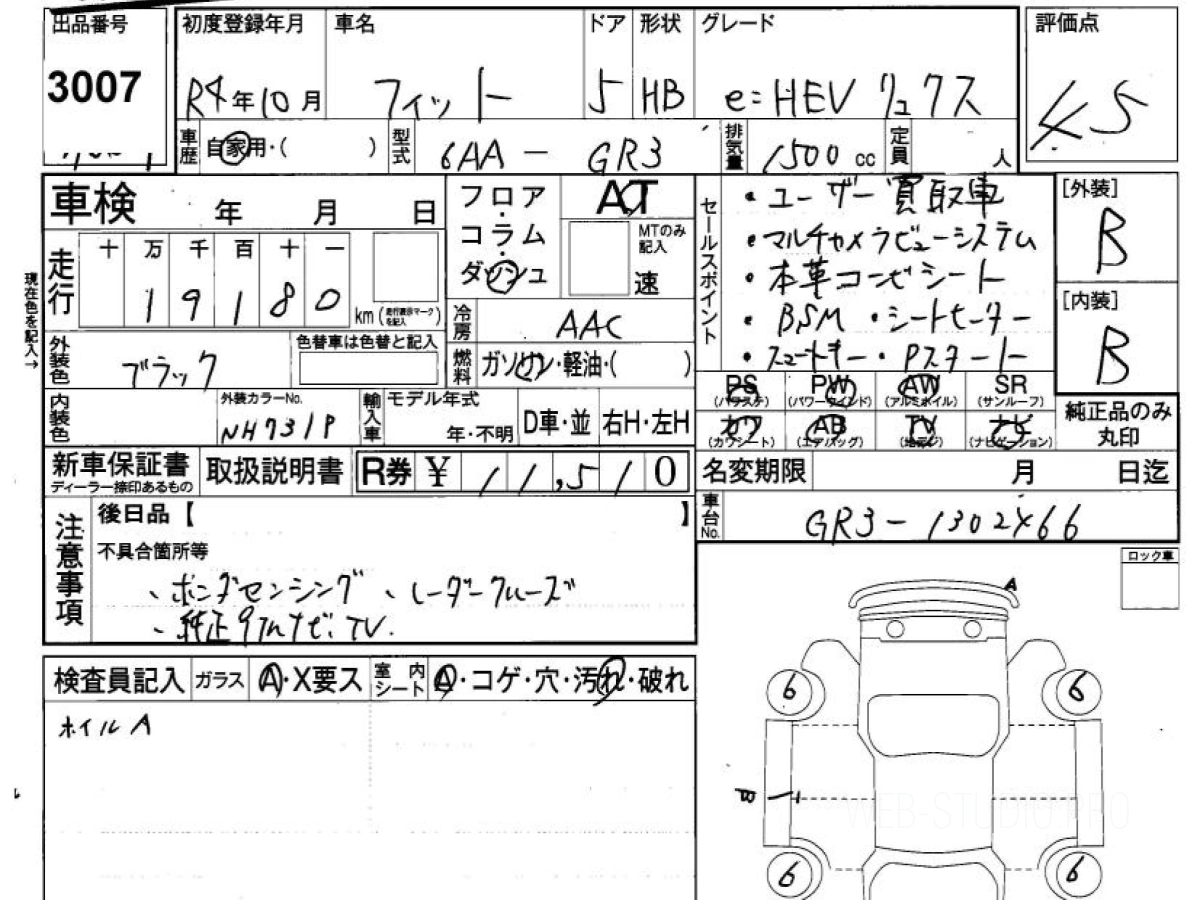 出品番号 初度登録年月 車名 ドア 形状 グレード 評価点
3007 R4年10月 フィット 5 HB e:HEV リュクス 4.5
車歴 自家用・( ) 型式 6AA - GR3 排気量 1500 cc 定員 人
車検 年 月 日
フロア・コラム・ダッシュ
AT
MTのみ記入
速
セールスポイント
・ユーザー買取車
・マルチカメラビューシステム
・本革コンビシート
・BSM ・シートヒーター
・スマートキー・Pスタート
[外装]
B
[内装]
B
現在色を記入→
走行 十 万 千 百 十 一
1 9 1 8 0 km (走行表示マークを記入)
冷房 AAC
燃料 ガソリン・軽油・( )
外装色 ブラック 色替車は色替と記入
内装色 外装カラーNo. NH731P
輸入車 モデル年式 年・不明 D車・並 右H・左H
PS (パワステ) PW (パワーウインド) AW (アルミホイル) SR (サンルーフ)
カワ (カワシート) AB (エアバッグ) TV (地デジ) ナビ (ナビゲーション)
純正品のみ丸印
新車保証書 ディーラー捺印あるもの 取扱説明書 R券 ¥ 11,510
名変期限 月 日迄
車台No. GR3-1302466
注意事項
後日品【 】
不具合箇所等
、ホンダセンシング、レーダークルーズ
、純正9インナビ、TV.
ロック車
A
検査員記入 ガラス A・X要ス 室内シート A・コゲ・穴・汚れ・破れ
ホイルA
6 6
6 6
WEB-STUDIO.PRO